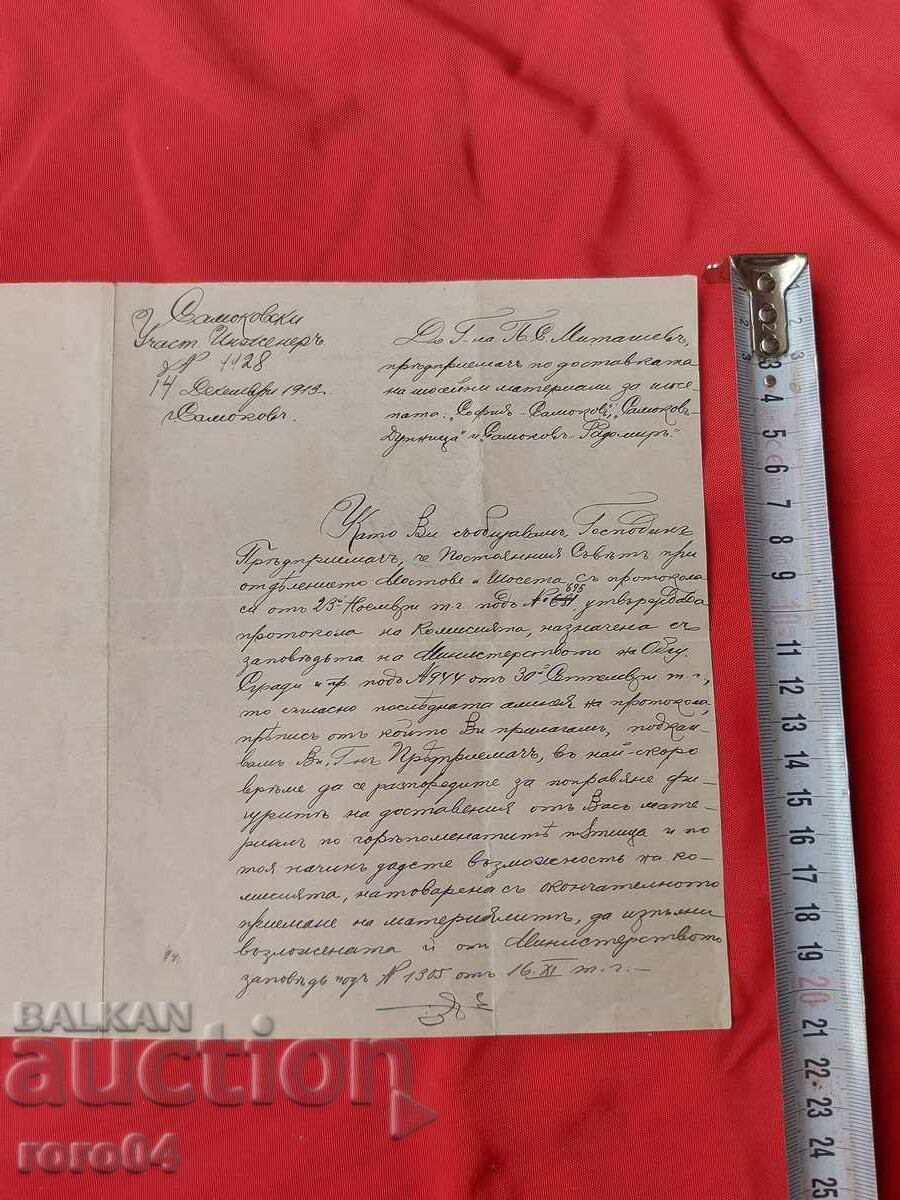 Самоковски
Участ. Инженеръ
№ 1928
14 Декември 1913.
г. Самоковъ.
До Г-на П. С. Миташевъ,
прѣдприемачъ по доставката
на шосейни материали за шосе-
пата: „София-Самоковъ“, „Самоковъ-
Дупница“ и „Самоковъ-Радомиръ“
Като Ви съобщавамъ, Господинъ
Прѣдприемачъ, че Постоянния Съвѣтъ при
отдѣлението Мостове и Шосета, съ протокола
си от 23й Ноември т.г. подъ № 695, утвърждава
протокола на Комисията, назначена съ
заповѣдьта на Министерството на Общ.
Сгради и пр. подъ № 944 отъ 30й Септември т.г.,
то съгласно послѣдната алинея на протокола,
прѣписъ отъ който Ви прилагамъ, подка-
вамъ Ви, Г-нъ Прѣдприемачъ, въ най-скоро
врѣме да се разпоредите за поправяне фи-
гуритѣ на доставения отъ Васъ мате-
риал по горѣпоменатитѣ пѫтища и по
тоя начин дадете възможность на ко-
мисията, натоварена съ окончателното
приемане на материялитѣ, да изпълни
възложената ѝ от Министерството
заповѣдь подъ № 1305 отъ 16.XI т.г.-
BALKAN
auction
roro04
1
2
3
4
5
6
7
8
9
10
11
12
13
14
15
16
17
18
19
20
21
22
23
24
25